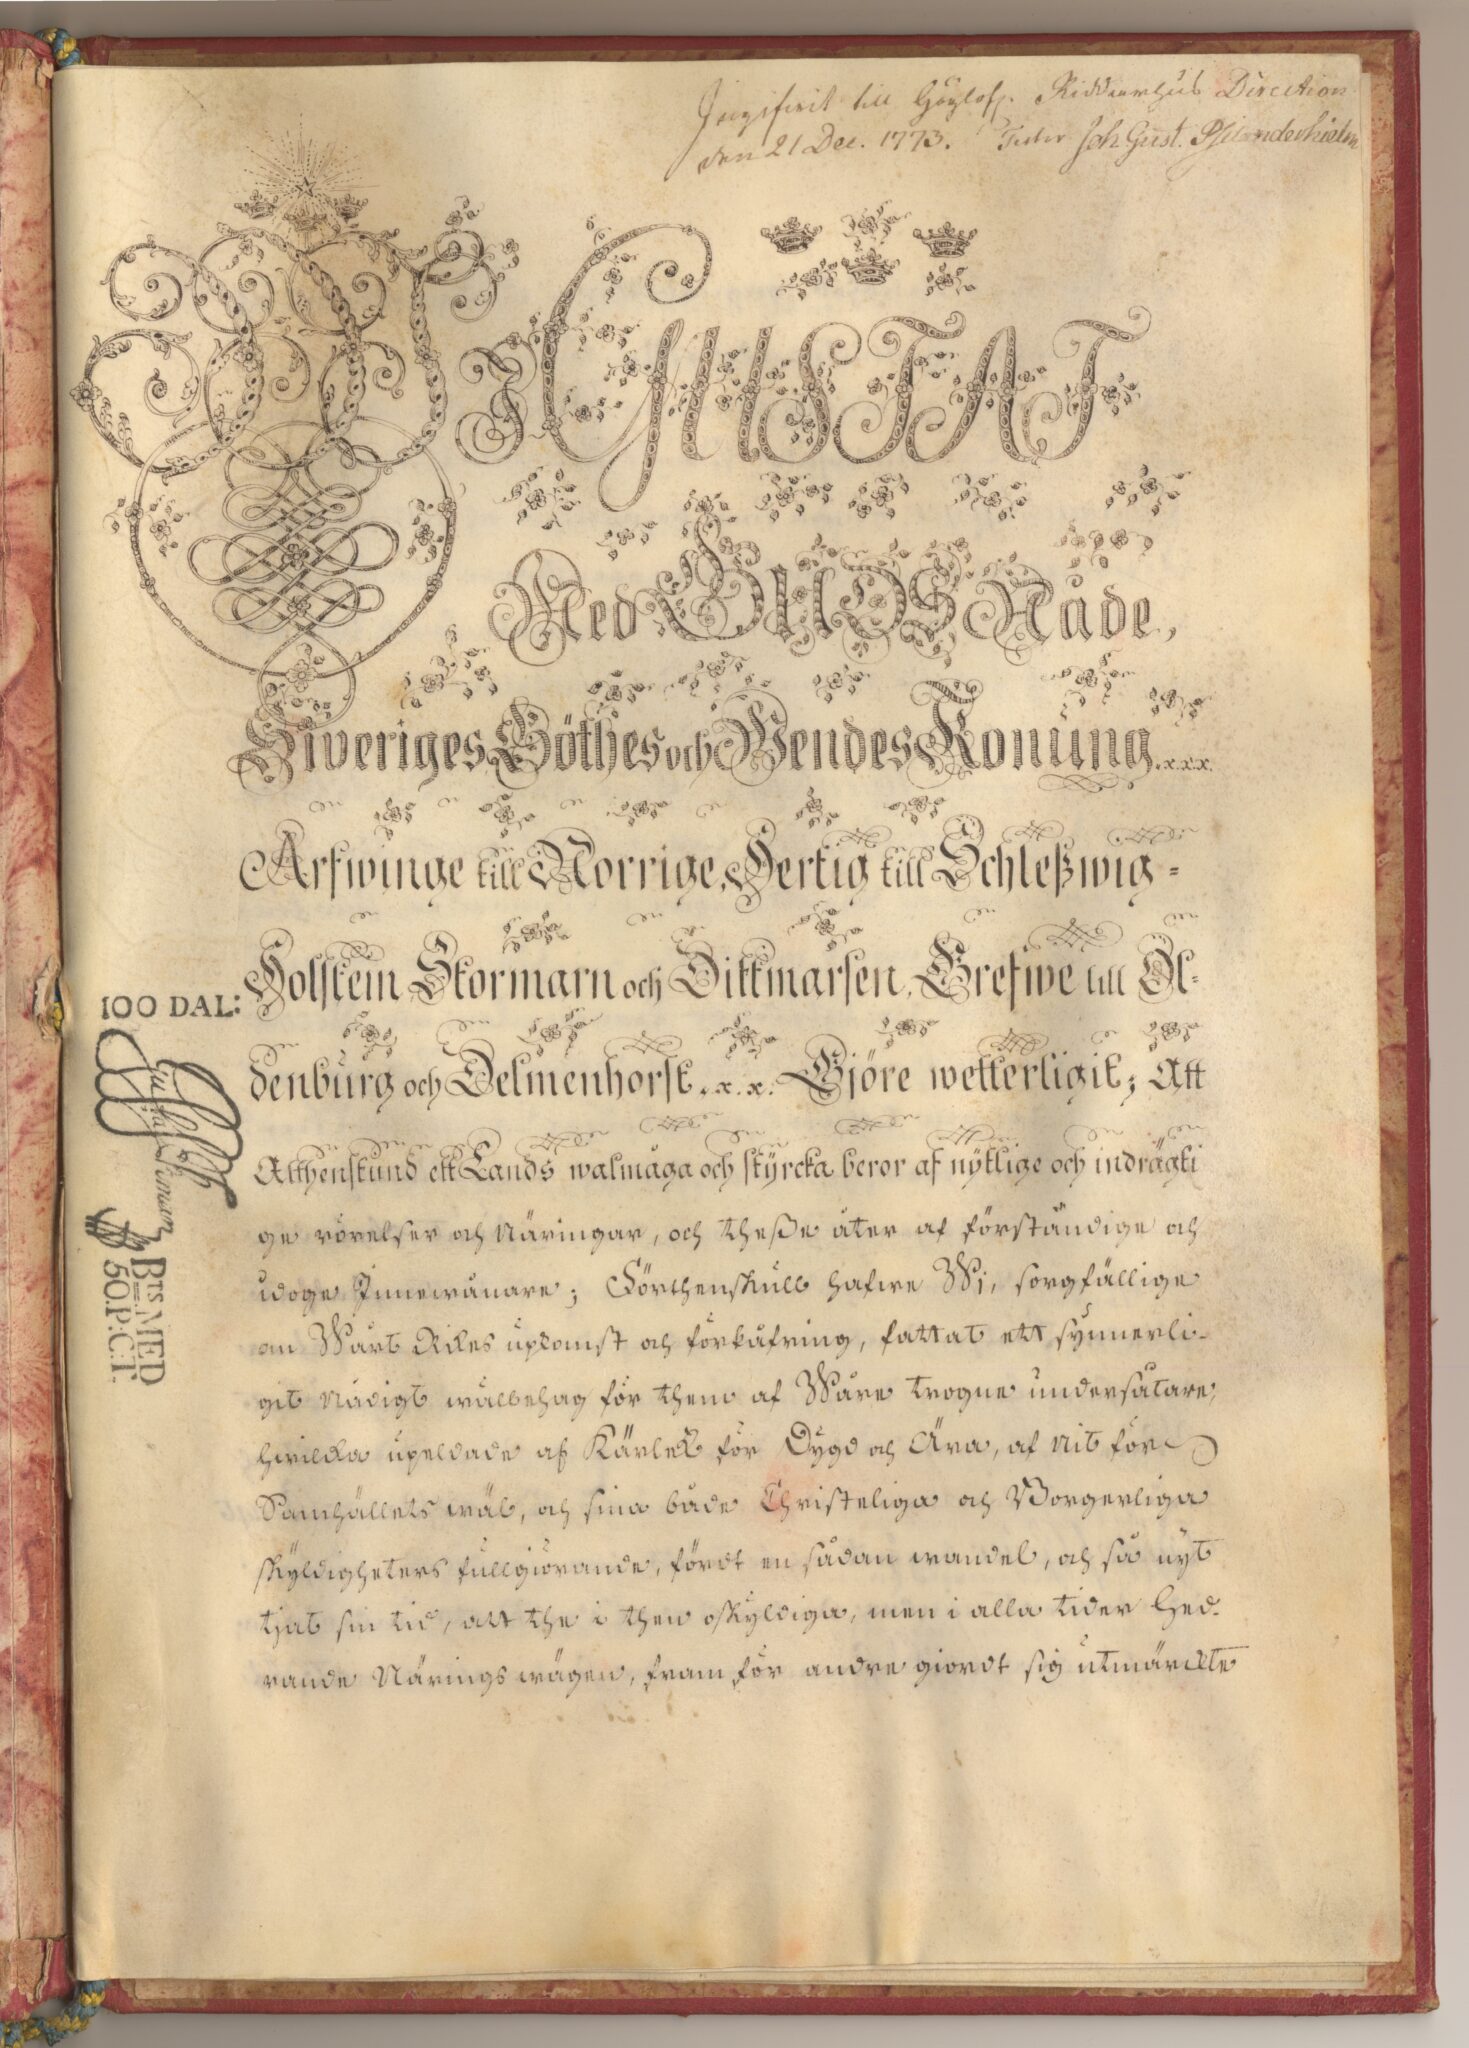 Ingifwit till Höglofl. Riddarhus Direction
den 21 Dec. 1773. Joh Gust.
WI GUSTAF
Med GUDS Nåde,
Sweriges Göthes och Wendes Konung .x.x.x.
Arfwinge till Norrige, Hertig till Schleßwig-
Holstein Stormarn och Dittmarsen, Grefwe till Ol-
denburg och Delmenhorst .x.x. Gjöre wetterligit; Att
100 DAL:
Althenstund ett Lands walmåga och styrcka beror af nyttige och indrägti
ge rörelser och Näringar, och theße åter af förständige och
idoge Innewånare; Förthenskull hafwe Wi, sorgfällige
om Wårt Rikes upkomst och förkåfring, fattat ett synnerli-
git Nådigt wälbehag för them af Wåre trogne undersåtare,
hwilka upeldade af Kärlek för Dygd och Ära, af Nit för
Samhällets wäl, och sina både Christeliga och Borgerliga
skyldigheters fullgiörande, fördt en sådan wandel, och så nyt
tjat sin tid, att the i then oskyldiga, men i alla tider Hed-
rande Närings wägen, framför andre giordt sig utmärckte
BTS MED
50.P:C:T.